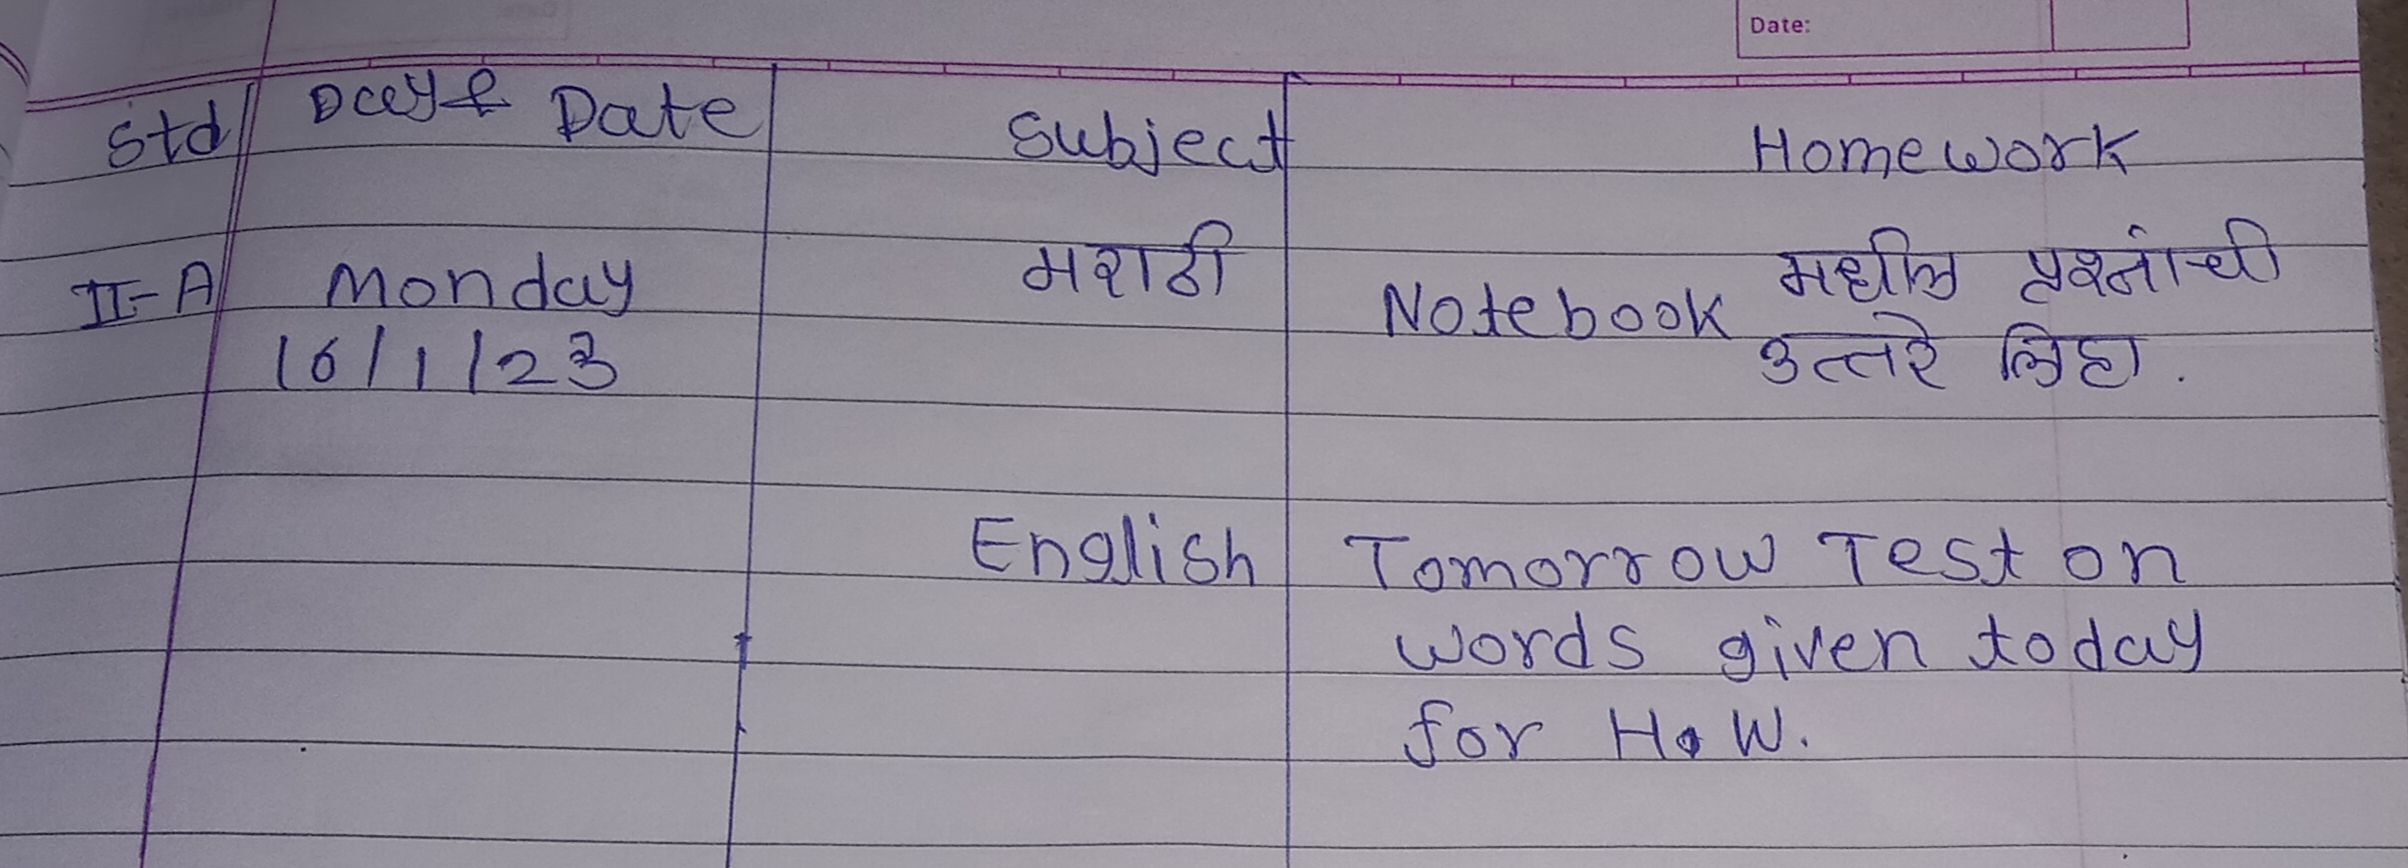 Date:
Std Day & Date Subject Homework
II-A Monday मराठी Notebook मधील प्रश्नांची
16/1/23 उत्तरे लिहा.
English Tomorrow Test on
words given today
for H.W.